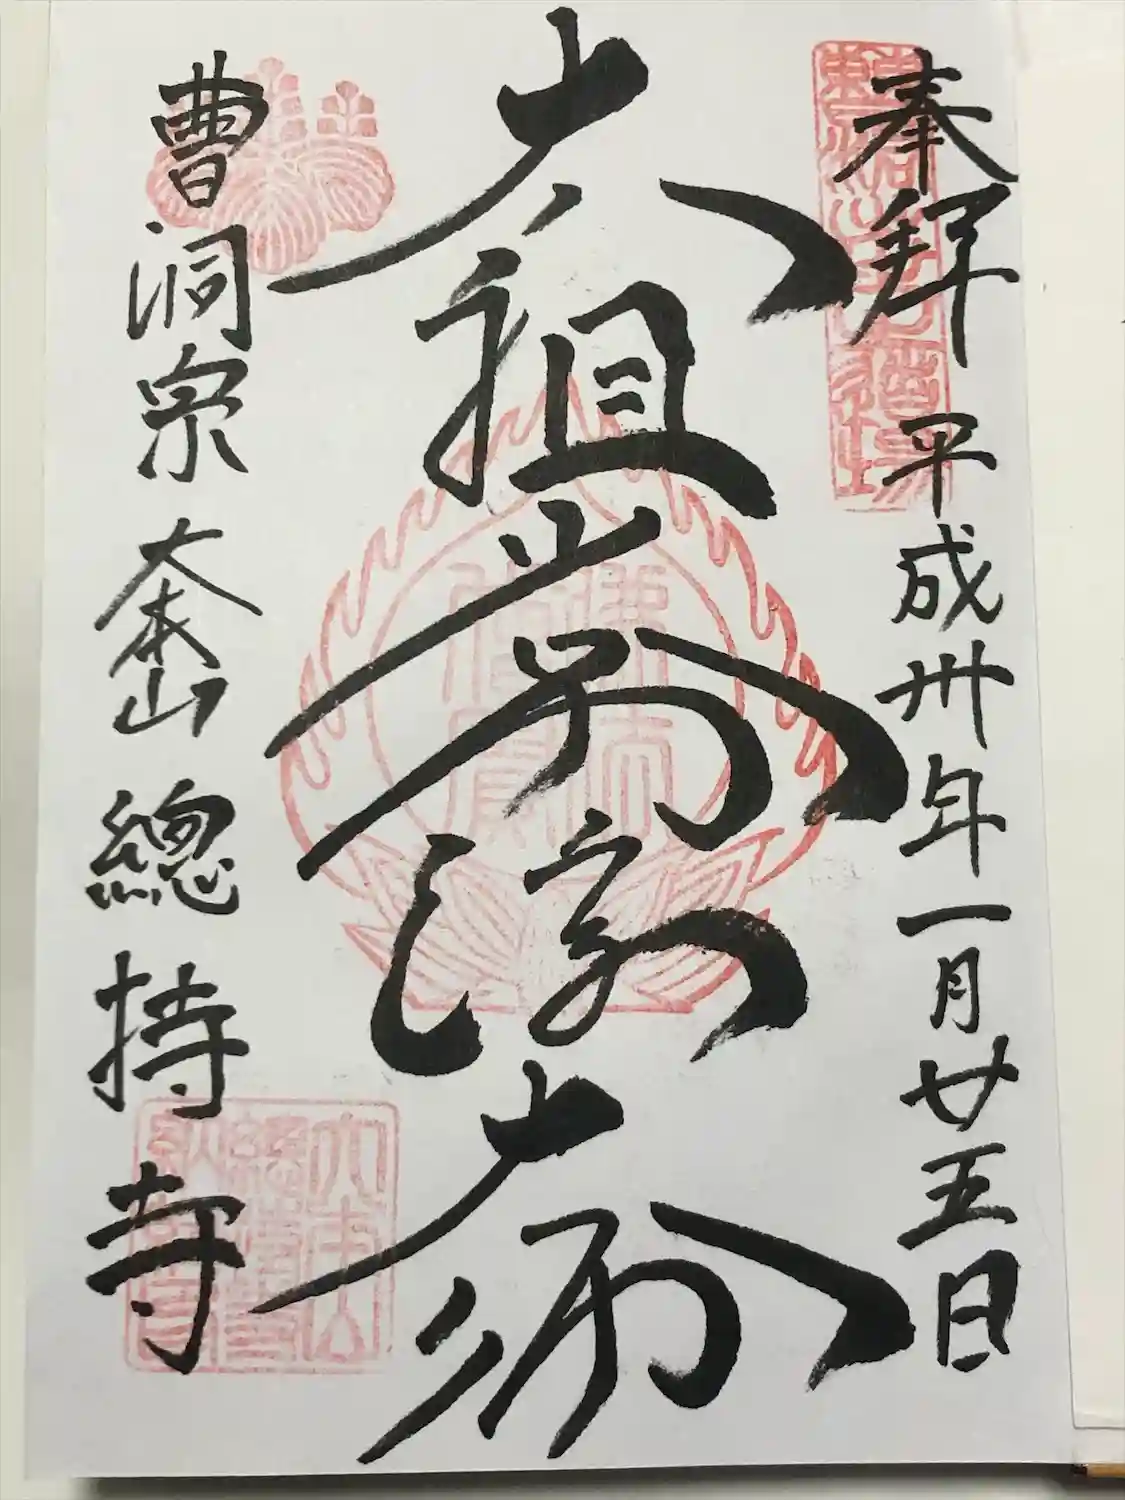 奉拝 平成卅年一月廿五日
太祖常済大師
曹洞宗 大本山 總持寺
佛法
僧寶